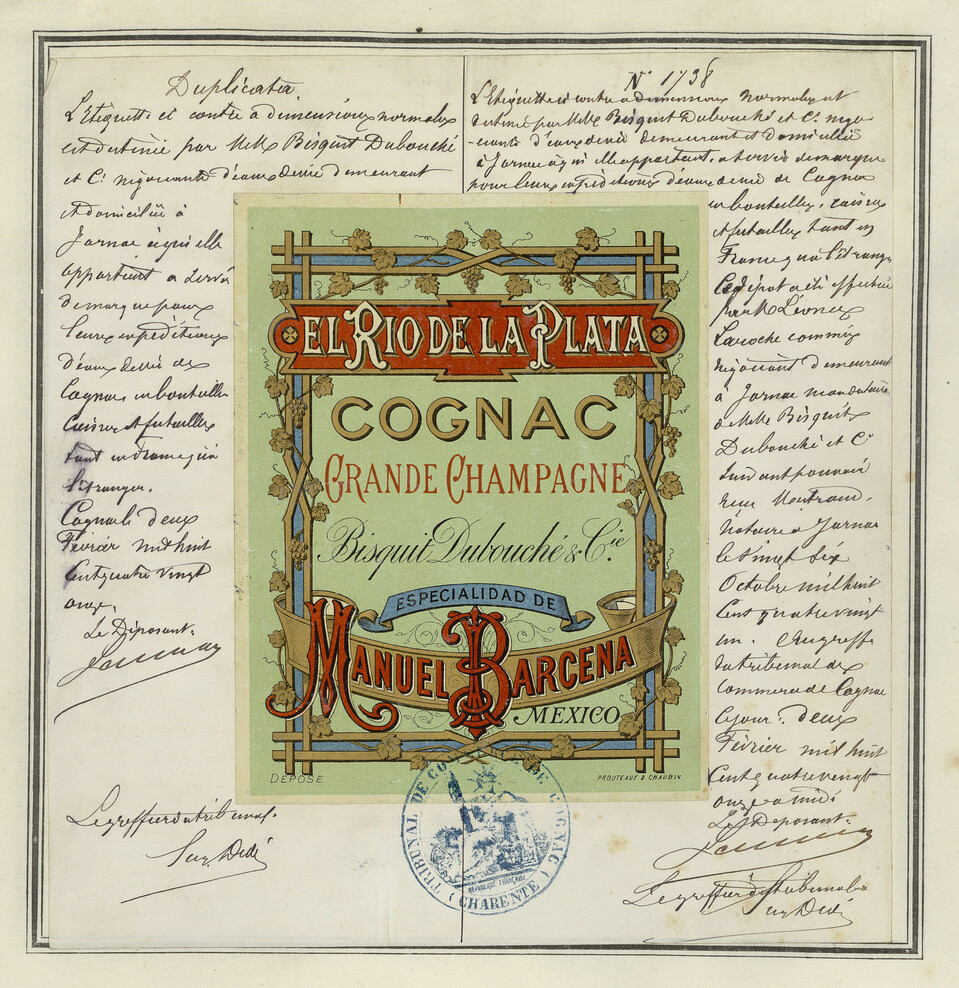 Duplicata
L'Etiquette ci contre a dimensions normales
est destinée par MM. Bisquit Dubouché
et Cie négociants d'eaux de vie demeurant
et domiciliés à
Jarnac à qui elle
appartient a servir
de marque pour
leurs expéditions
d'eaux de vie de
Cognac en bouteilles
Caisses et futailles
tant en France qu'à
l'étranger.
Cognac le deux
Février mil huit
cent quatre vingt
onze.
Le Déposant:
Le greffier du tribunal.
N° 1738
L'Etiquette ci contre a dimensions normales est
destinée par MM. Bisquit Dubouché et Cie négo-
-ciants d'eaux de vie demeurant et domiciliés
à Jarnac à qui elle appartient, a servir de marque
pour leurs expéditions d'eaux de vie de Cognac
en bouteilles, caisses
et futailles tant en
France qu'à l'étranger
Le dépôt a été effectué
par M. Léonce
Laroche commis
négociant demeurant
à Jarnac mandataire
de MM. Bisquit
Dubouché et Cie
suivant pouvoir
reçu
notaire à Jarnac
le vingt six
Octobre mil huit
cent quatre vingt
un. Au greffe
du tribunal de
commerce de Cognac
ce jour: deux
Février mil huit
cent quatre vingt
onze à midi
Le Déposant:
Le greffier du tribunal
EL RIO DE LA PLATA
COGNAC
GRANDE CHAMPAGNE
Bisquit Dubouché & Cie.
ESPECIALIDAD DE
MANUEL BARCENA
MEXICO
DEPOSE
PROUTEAUX & CHAUBIN
TRIBUNAL DE COMMERCE DE COGNAC
REPUBLIQUE FRANÇAISE
(CHARENTE)